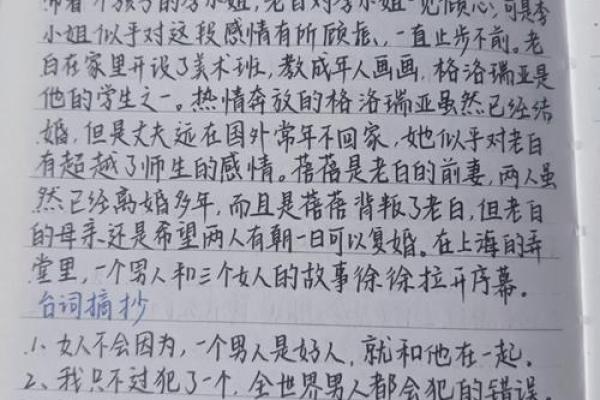 带着个孩子的李小姐,老白对李小姐一见倾心,可是李
小姐似乎对这段感情有所顾虑,一直止步不前。老
白在家里开设了美术班,教成年人画画,格洛瑞亚是
他的学生之一。热情奔放的格洛瑞亚虽然已经结
婚,但是丈夫远在国外常年不回家,她似乎对老白
有超越了师生的感情。蓓蓓是老白的前妻,两人虽
然已经离婚多年,而且是蓓蓓背叛了老白,但老白
的母亲还是希望两人有朝一日可以复婚。在上海的弄
堂里,一个男人和三个女人的故事徐徐拉开序幕。
台词摘抄
1、女人不会因为,一个男人是好人,就和他在一起。
2、我只不过犯了一个,全世界男人都会犯的错误。